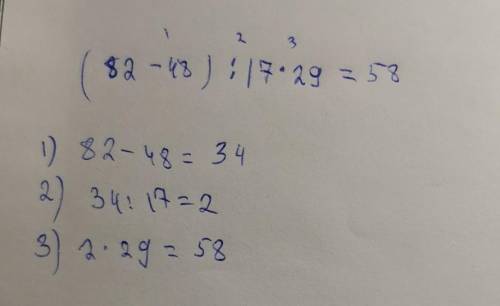 1 2 3
(82 - 48) : 17 · 29 = 58
1) 82 - 48 = 34
2) 34 : 17 = 2
3) 2 · 29 = 58